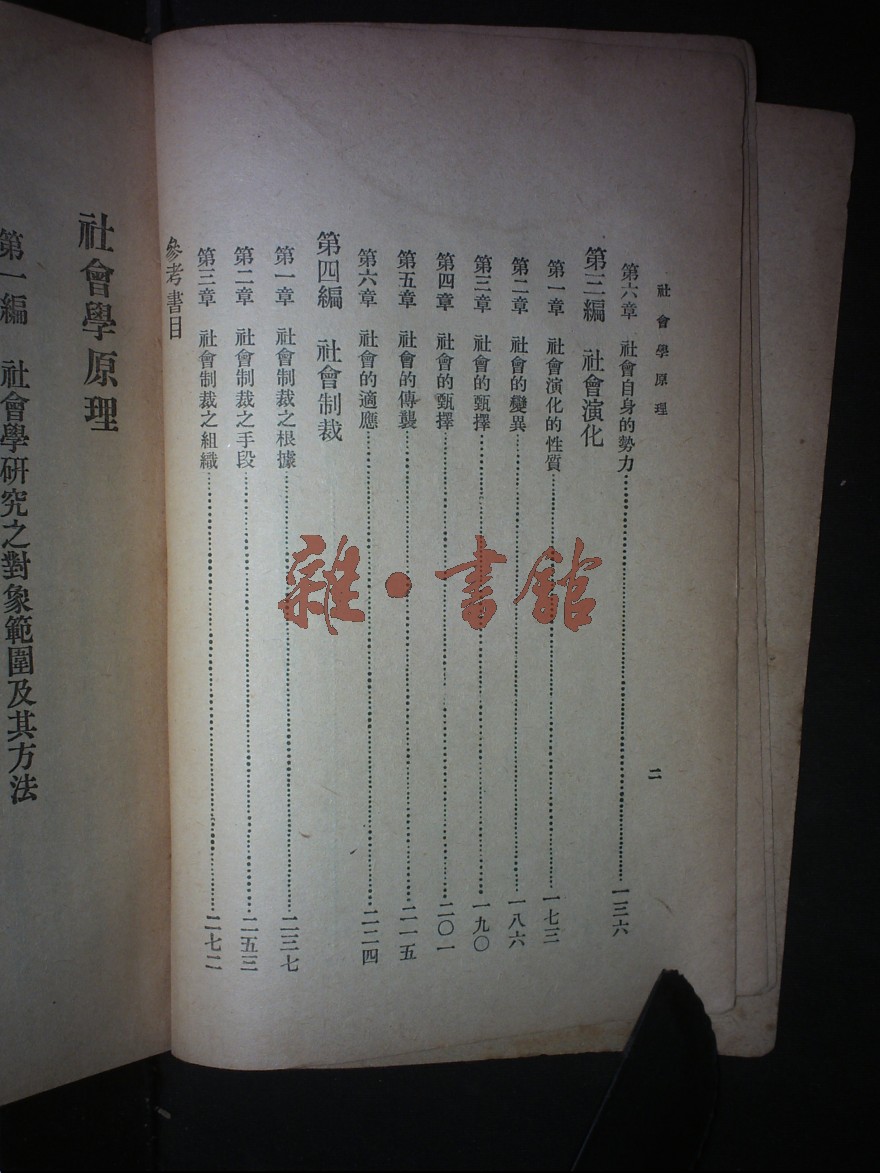 社會學原理
二
第六章 社會自身的勢力⋯⋯一三六
第三編 社會演化
第一章 社會演化的性質⋯⋯一七三
第二章 社會的變異⋯⋯一八六
第三章 社會的甄擇⋯⋯一九〇
第四章 社會的甄擇⋯⋯二〇一
第五章 社會的傳襲⋯⋯二一五
第六章 社會的適應⋯⋯二二四
第四編 社會制裁
第一章 社會制裁之根據⋯⋯二三七
第二章 社會制裁之手段⋯⋯二五三
第三章 社會制裁之組織⋯⋯二七二
參考書目
社會學原理
第一編 社會學研究之對象範圍及其方法
雜·書館